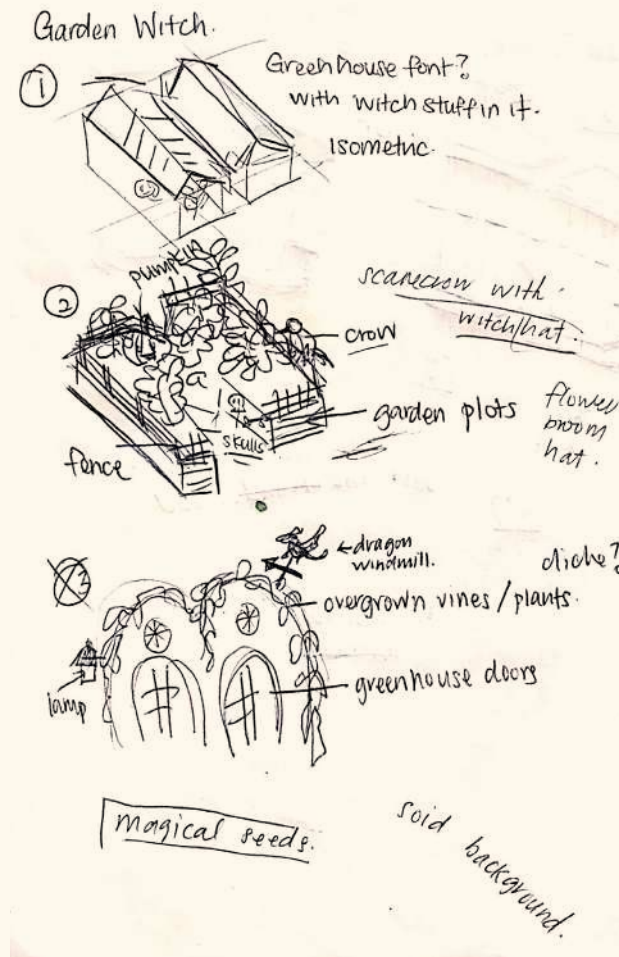 Garden Witch.
①
Greenhouse font?
with witch stuff in it.
Isometric.
②
pumpkin
scarecrow with
witch/hat.
crow
garden plots
flower
broom
hat.
skulls
fence
3
←dragon
windmill.
cliche?
overgrown vines / plants.
lamp
greenhouse doors
magical seeds.
soid
background.